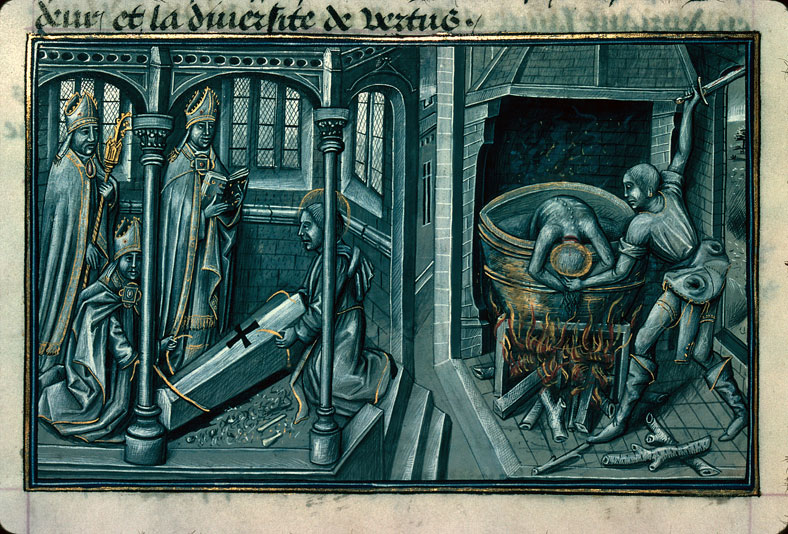 deur et la diuersite de vertus .